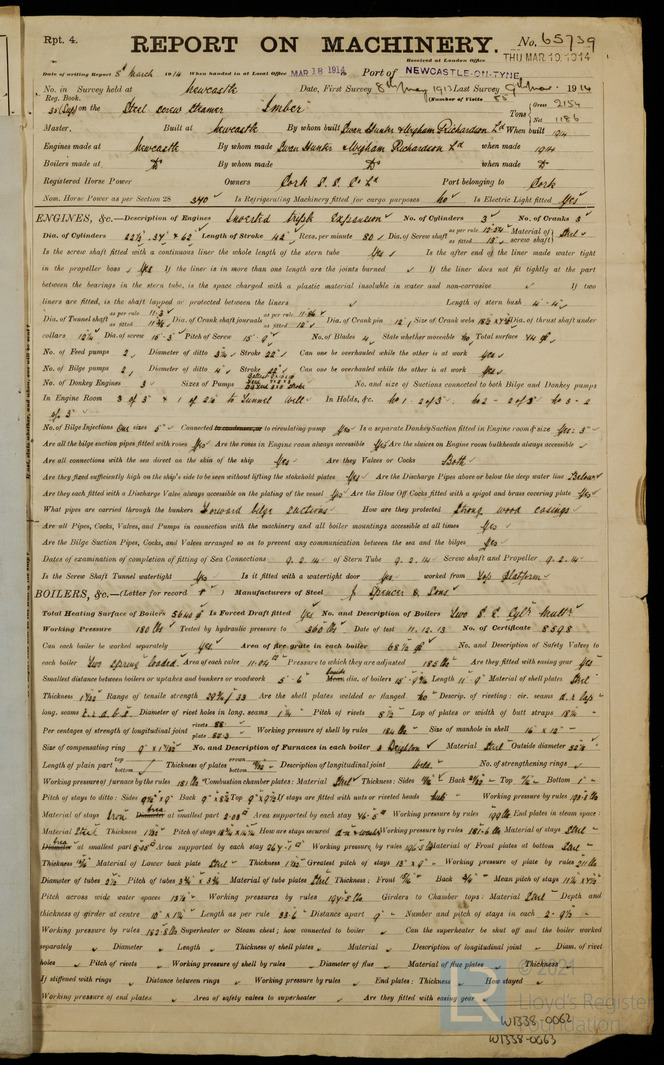 Rpt. 4.
REPORT ON MACHINERY.
No. 65739
Received at London Office
THU MAR 19. 1914
Date of writing Report 8th March 1914 When handed in at Local Office MAR 18 1914 Port of NEWCASTLE-ON-TYNE
No. in Survey held at Newcastle Date, First Survey 8th May 1913 Last Survey 9th Mar. 1914
Reg. Book. (Number of Visits 85)
on the Steel Screw Steamer Imber Tons Gross 2154 Net 1186
Master. Built at Newcastle By whom built Swan Hunter & Wigham Richardson Ld When built 1914
Engines made at Newcastle By whom made Swan Hunter & Wigham Richardson Ld when made 1914
Boilers made at Do By whom made Do when made Do
Registered Horse Power Owners Cork S. S. Co Ld Port belonging to Cork
Nom. Horse Power as per Section 28 340 Is Refrigerating Machinery fitted for cargo purposes No Is Electric Light fitted Yes
ENGINES, &c.—Description of Engines Inverted Triple Expansion No. of Cylinders 3 No. of Cranks 3
Dia. of Cylinders 22½ . 37 & 62 Length of Stroke 42 Revs. per minute 80 Dia. of Screw shaft as per rule 12.54 as fitted 13 Material of screw shaft Steel
Is the screw shaft fitted with a continuous liner the whole length of the stern tube Yes Is the after end of the liner made water tight
in the propeller boss Yes If the liner is in more than one length are the joints burned If the liner does not fit tightly at the part
between the bearings in the stern tube, is the space charged with a plastic material insoluble in water and non-corrosive If two
liners are fitted, is the shaft lapped or protected between the liners Length of stern bush 4'-4"
Dia. of Tunnel shaft as per rule 11.3 as fitted Dia. of Crank shaft journals as per rule 11.86 as fitted 12 Dia. of Crank pin 12 Size of Crank webs Dia. of thrust shaft under
collars 12¼ Dia. of screw 15-3 Pitch of Screw 15-9 No. of Blades 4 State whether moveable No Total surface 74
No. of Feed pumps 2 Diameter of ditto 3¼ Stroke 22 Can one be overhauled while the other is at work Yes
No. of Bilge pumps 2 Diameter of ditto 4 Stroke 22 Can one be overhauled while the other is at work Yes
No. of Donkey Engines 3 Sizes of Pumps No. and size of Suctions connected to both Bilge and Donkey pumps
In Engine Room 3 of 3 & 1 of 2½ to Tunnel Well In Holds, &c. No 1 - 2 of 3 No 2 - 2 of 3 No 3 - 2
of 3
No. of Bilge Injections One sizes 5 Connected to condenser, or to circulating pump Yes Is a separate Donkey Suction fitted in Engine room & size Yes - 3
Are all the bilge suction pipes fitted with roses Yes Are the roses in Engine room always accessible Yes Are the sluices on Engine room bulkheads always accessible
Are all connections with the sea direct on the skin of the ship Yes Are they Valves or Cocks Both
Are they fixed sufficiently high on the ship's side to be seen without lifting the stokehold plates Yes Are the Discharge Pipes above or below the deep water line Below
Are they each fitted with a Discharge Valve always accessible on the plating of the vessel Yes Are the Blow Off Cocks fitted with a spigot and brass covering plate Yes
What pipes are carried through the bunkers Forward bilge suctions How are they protected Strong wood casings
Are all Pipes, Cocks, Valves, and Pumps in connection with the machinery and all boiler mountings accessible at all times Yes
Are the Bilge Suction Pipes, Cocks, and Valves arranged so as to prevent any communication between the sea and the bilges Yes
Dates of examination of completion of fitting of Sea Connections 9.2.14 of Stern Tube 9.2.14 Screw shaft and Propeller 9.2.14
Is the Screw Shaft Tunnel watertight Yes Is it fitted with a watertight door Yes worked from Top Platform
BOILERS, &c.—(Letter for record ) Manufacturers of Steel J. Spencer & Sons
Total Heating Surface of Boilers 5640 Is Forced Draft fitted Yes No. and Description of Boilers Two S. E. Cyl. Mult.
Working Pressure 180 lbs Tested by hydraulic pressure to 360 lbs Date of test 11.12.13 No. of Certificate 8598
Can each boiler be worked separately Yes Area of fire grate in each boiler 68½ No. and Description of Safety Valves to
each boiler Two Spring loaded Area of each valve 11.04 Pressure to which they are adjusted 185 lbs Are they fitted with easing gear Yes
Smallest distance between boilers or uptakes and bunkers or woodwork 5-6 Mean dia. of boilers Length 11-9 Material of shell plates Steel
Thickness Range of tensile strength Are the shell plates welded or flanged No Descrip. of riveting: cir. seams d.r. lap
long. seams Diameter of rivet holes in long. seams 1¼ Pitch of rivets 8½ Lap of plates or width of butt straps
Per centages of strength of longitudinal joint rivets 88 plate Working pressure of shell by rules 184 lbs Size of manhole in shell 16" x 12"
Size of compensating ring No. and Description of Furnaces in each boiler 3 Deighton Material Steel Outside diameter
Length of plain part top bottom Thickness of plates crown bottom Description of longitudinal joint Weld No. of strengthening rings
Working pressure of furnace by the rules 181 lbs Combustion chamber plates: Material Steel Thickness: Sides Back Top Bottom 1"
Pitch of stays to ditto: Sides Back Top If stays are fitted with nuts or riveted heads Nuts Working pressure by rules
Material of stays Iron Diameter at smallest part 2.03 Area supported by each stay Working pressure by rules 199 lbs End plates in steam space:
Material Steel Thickness Pitch of stays How are stays secured Working pressure by rules Material of stays Steel
Diameter at smallest part Area supported by each stay Working pressure by rules Material of Front plates at bottom Steel
Thickness Material of Lower back plate Steel Thickness Greatest pitch of stays 13 x 9 Working pressure of plate by rules 211 lbs
Diameter of tubes 2½ Pitch of tubes 3¾ x 3¾ Material of tube plates Steel Thickness: Front Back Mean pitch of stays
Pitch across wide water spaces Working pressures by rules Girders to Chamber tops: Material Steel Depth and
thickness of girder at centre Length as per rule 33.6 Distance apart 9 Number and pitch of stays in each 2 - 9½
Working pressure by rules 182.8 lbs Superheater or Steam chest; how connected to boiler Can the superheater be shut off and the boiler worked
separately Diameter Length Thickness of shell plates Material Description of longitudinal joint Diam. of rivet
holes Pitch of rivets Working pressure of shell by rules Diameter of flue Material of flue plates Thickness
If stiffened with rings Distance between rings Working pressure by rules End plates: Thickness How stayed
Working pressure of end plates Area of safety valves to superheater Are they fitted with easing gear
© 2021
Lloyd's Register
Foundation
W1338-0062
W1338-0063